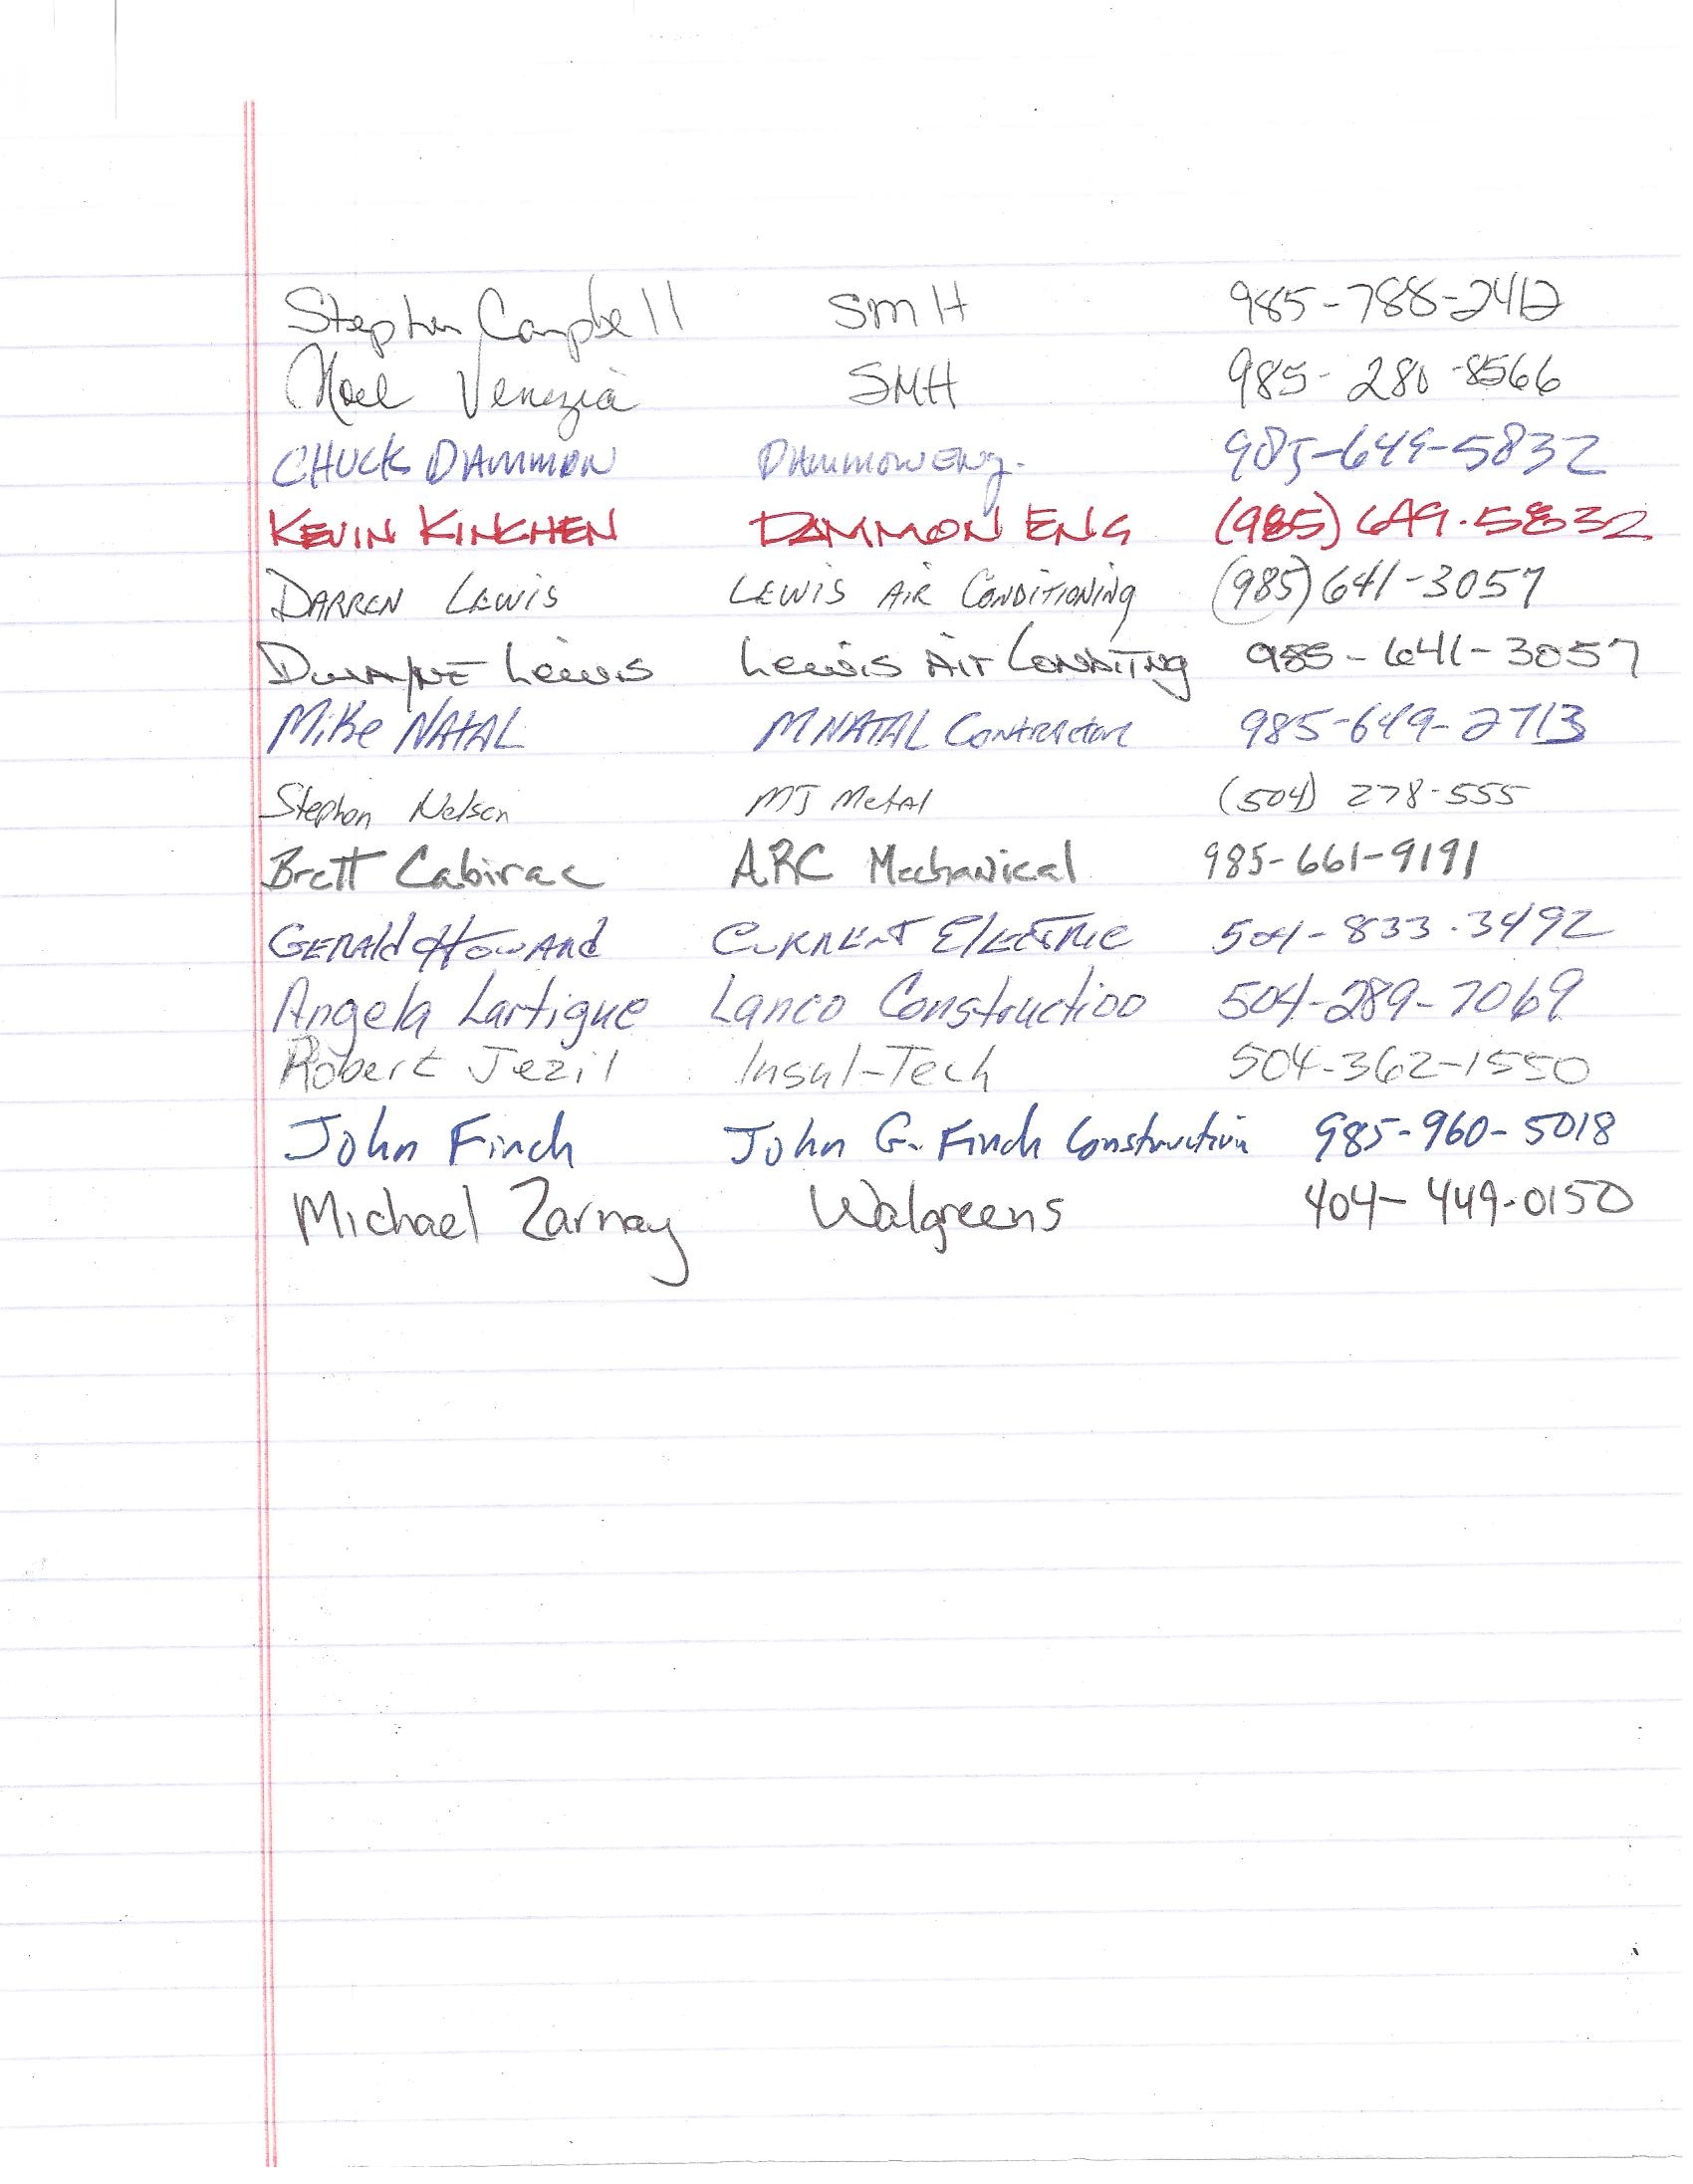 Stephen Campbell SMH 985-788-2412
Noel Venezia SMH 985-280-8566
CHUCK DAMMON DAMMON ENg. 985-649-5832
KEVIN KINCHEN DAMMON ENG (985) 649.5832
DARREN LEWIS LEWIS AIR CONDITIONING (985) 641-3057
DWAYNE Lewis Lewis Air CONDITNG 985-641-3057
Mike NATAL M NATAL Contractor 985-649-2713
Stephen Nelson MJ Metal (504) 278-555
Brett Cabirac ARC Mechanical 985-661-9191
GERALd HowARd CURRENT ElECTRIC 504-833.3492
Angela Lartigue Lanco Construction 504-289-7069
Robert Jezil Insul-Tech 504-362-1550
John Finch John G. Finch Construction 985-960-5018
Michael Zarnay Walgreens 404-449-0150